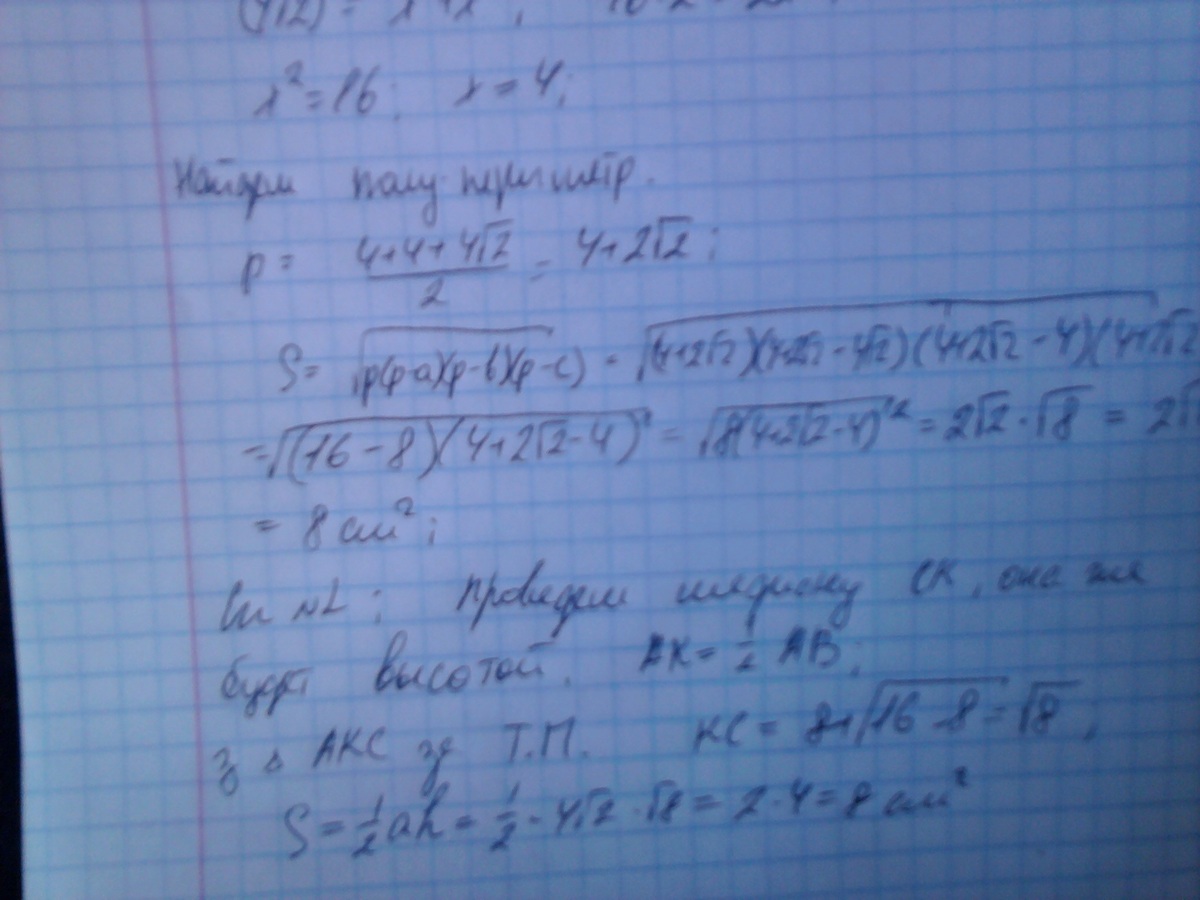 x² = 16; x = 4;
Найдем полу-периметр.
p = (4+4+4√2)/2 = 4+2√2;
S = √(p(p-a)(p-b)(p-c)) = √((4+2√2)(4+2√2-4√2)(4+2√2-4)(4+2√2
= √((16-8)(4+2√2-4)² = √(8(4+2√2-4)²) = 2√2·√8 = 2√
= 8 см²;
Проведем медиану СК, она же
будет высотой. АК = ½ АВ;
з △ АКС за Т.П. КС = √(16-8) = √8;
S = ½ah = ½·4√2·√8 = 2·4 = 8 см²